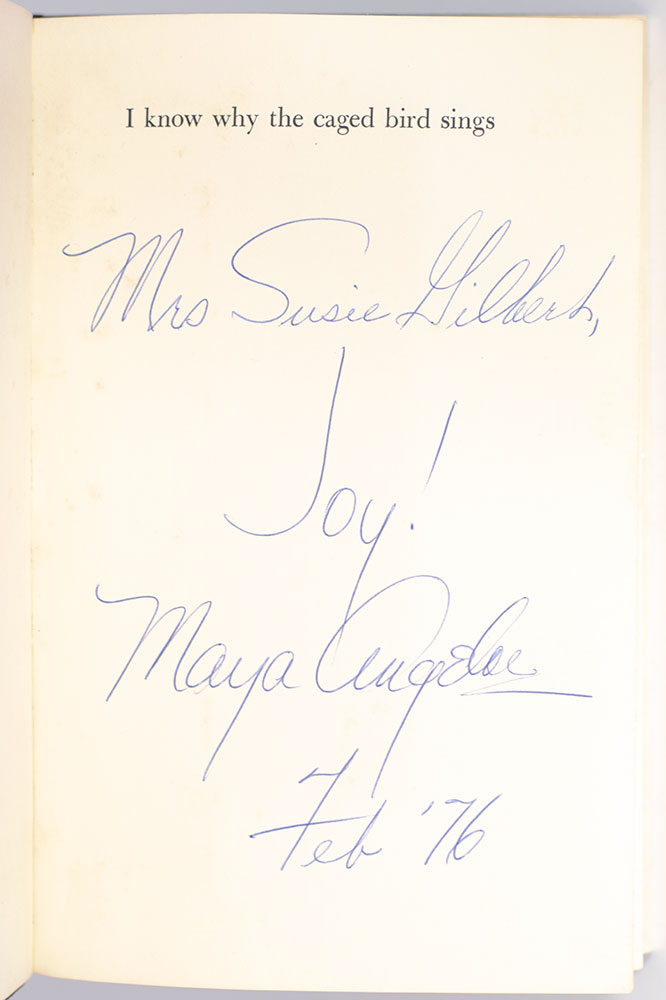 I know why the caged bird sings
Mrs Susie Gilbert,
Joy!
Maya Angelou
Feb '76